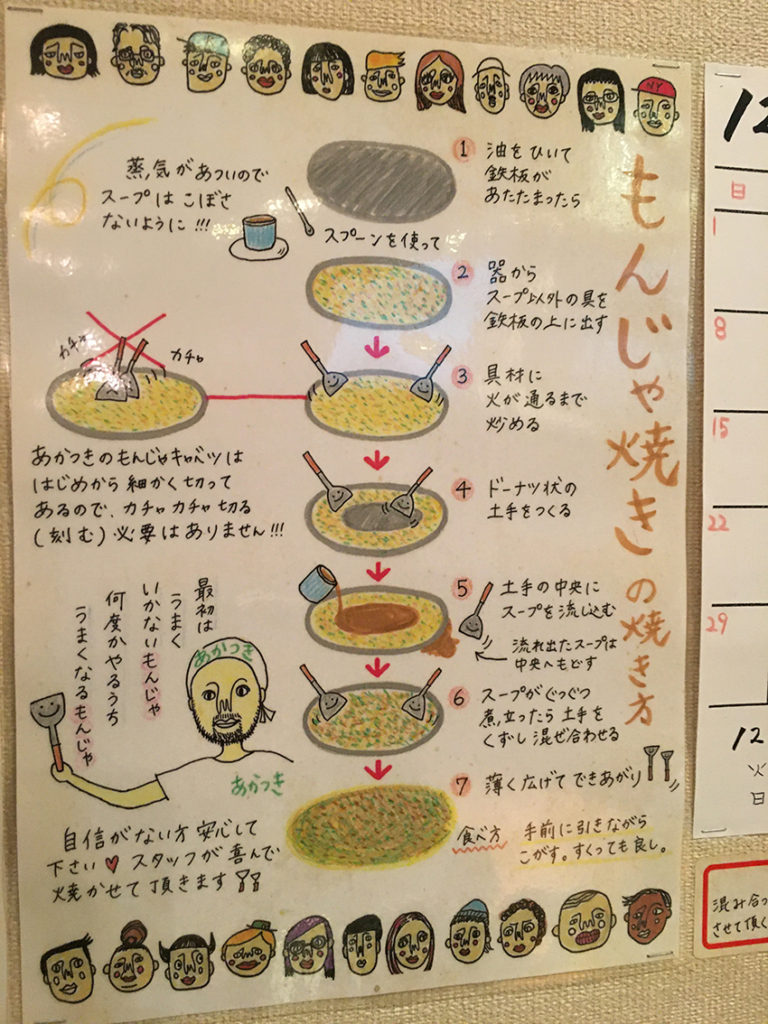 もんじゃ焼きの焼き方
蒸気があついので
スープはこぼさ
ないように!!!
スプーンを使って
1 油をひいて
鉄板が
あたたまったら
2 器から
スープ以外の具を
鉄板の上に出す
3 具材に
火が通るまで
炒める
カチャ
カチャ
あかつきのもんじゃキャベツは
はじめから細かく切って
あるので、カチャカチャ切る
(刻む)必要はありません!!!
4 ドーナツ状の
土手をつくる
5 土手の中央に
スープを流し込む
流れ出たスープは
中央へもどす
6 スープがぐつぐつ
煮立ったら土手を
くずし混ぜ合わせる
7 薄く広げてできあがり
食べ方
手前に引きながら
こがす。すくっても良し。
最初は
うまく
いかないもんじゃ
何度かやるうち
うまくなるもんじゃ
あかつき
あかつき
自信がない方安心して
下さい♥スタッフが喜んで
焼かせて頂きます
NY
12
日
1
8
15
22
29
12
火
日
混み合っ
させて頂く